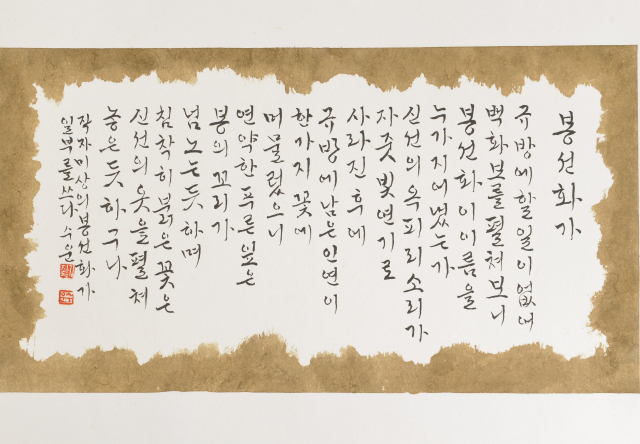 봉선화가
규방에 할 일이 없어
백화보를 펼쳐보니
봉선화 이 이름을
누가 지어냈는가
신선의 옥피리 소리가
자줏빛 연기로
사라진 후에
규방에 남은 인연이
한가지 꽃에
머물렀으니
연약한 푸른 잎은
봉의 꼬리가
넘노는 듯하며
침착히 붉은 꽃은
신선의 옷을 펼쳐
놓은 듯하구나
작자미상의 봉선화가
일부를 쓰다 수운